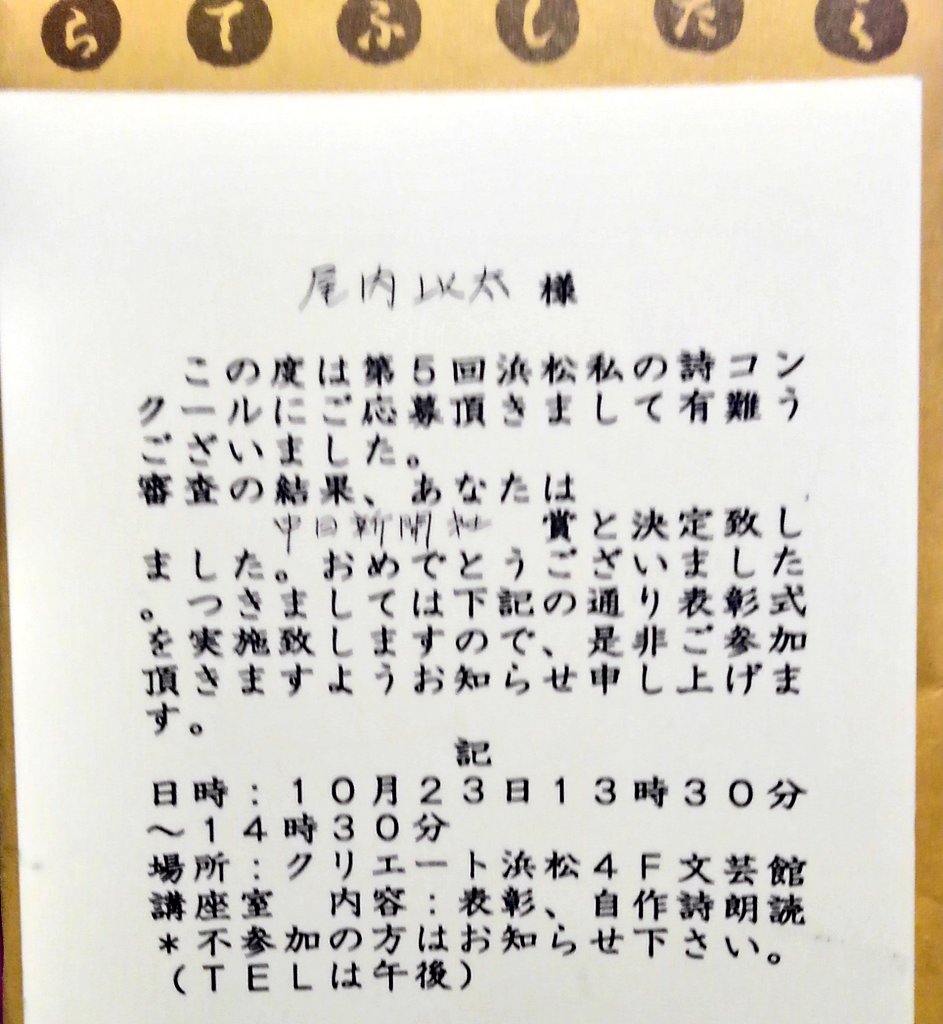 らてふした
尾内以太 様
この度は第５回浜松私の詩コン
クールにご応募頂きまして有難う
ございました。
審査の結果、あなたは
中日新聞社 賞と決定致し
ました。おめでとうございました
。つきましては下記の通り表彰式
を実施致しますので、是非ご参加
頂きますようお知らせ申し上げま
す。
記
日時：１０月２３日１３時３０分
～１４時３０分
場所：クリエート浜松４Ｆ文芸館
講座室　内容：表彰、自作詩朗読
＊不参加の方はお知らせ下さい。
（ＴＥＬは午後）